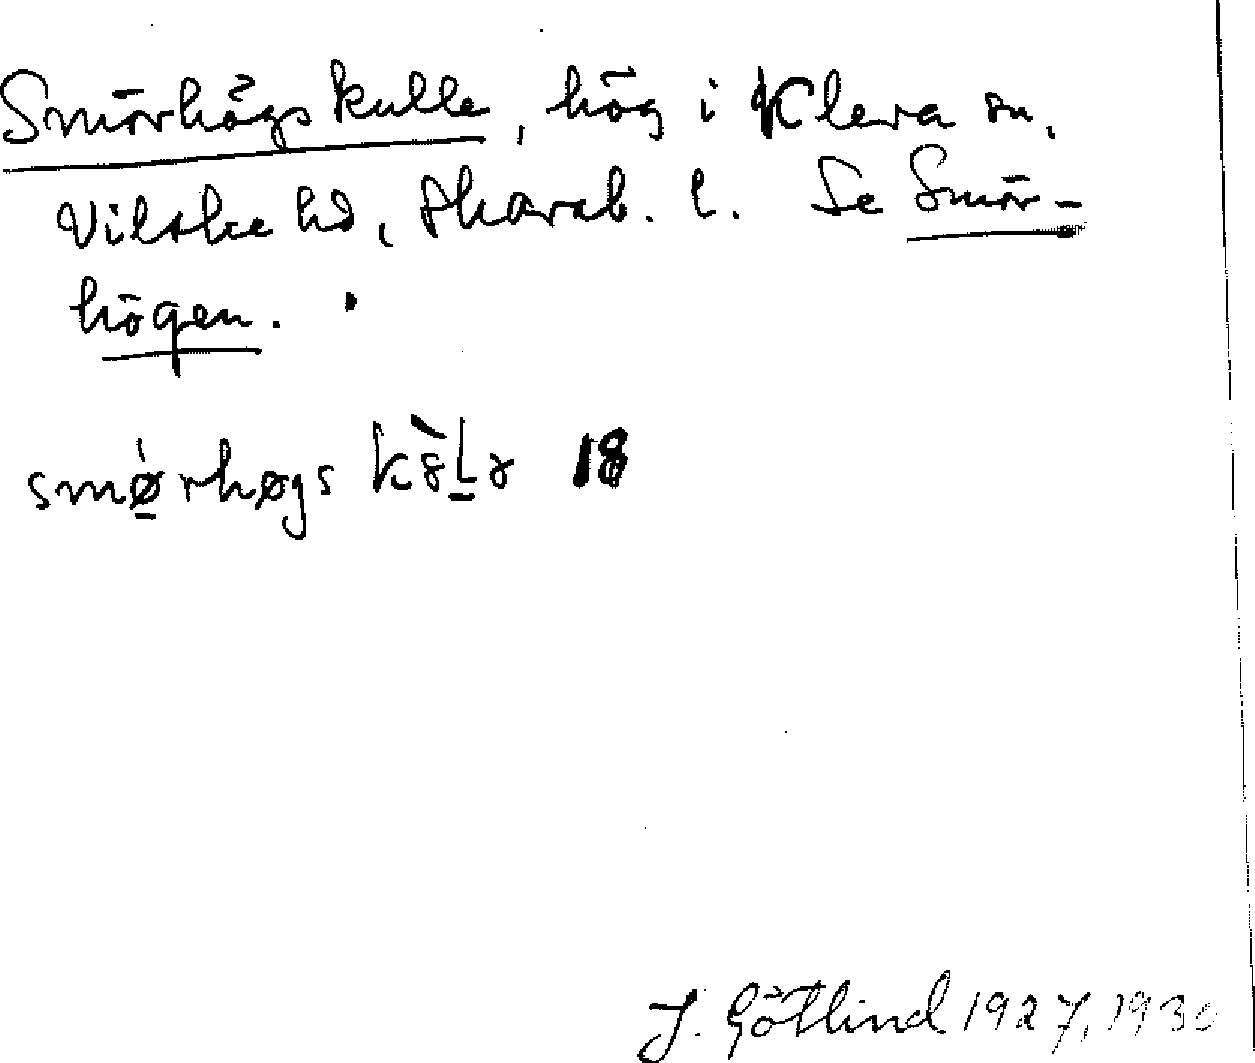 Smörhögskulle, hög i Kleva sn,
Vilske hd, Skarab. l. Se Smör-
högen.
smørhøgs 18
J. Götlind 1927, 1930